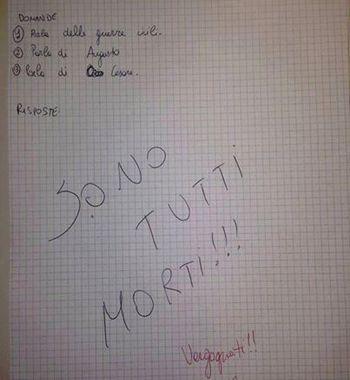 DOMANDE
① Parla delle guerre civili.
② Parla di Augusto
③ Parla di Cesare.
RISPOSTE:
SONO
TUTTI
MORTI!!!
Vergognati!!